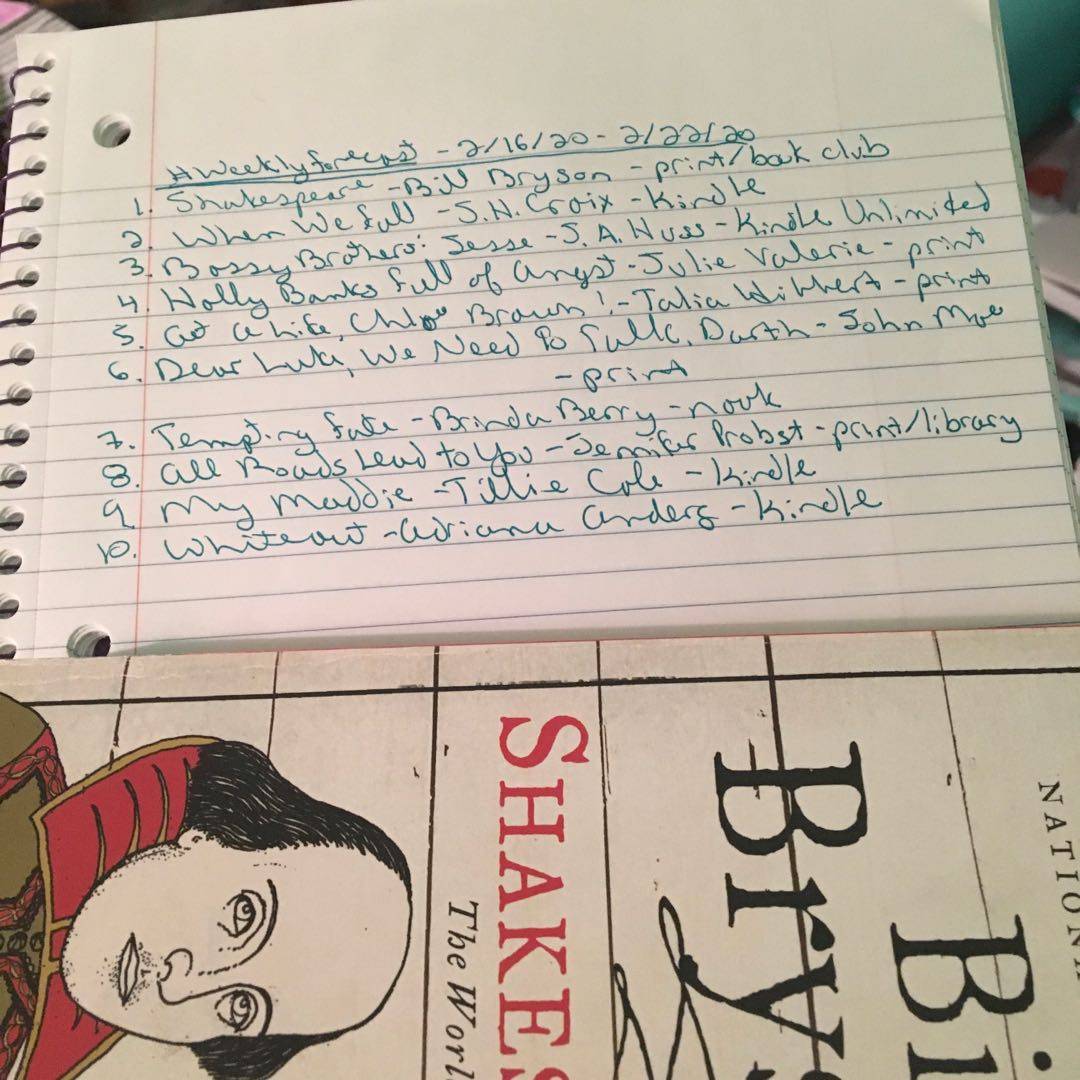 #Weeklyforecast - 2/16/20 - 2/22/20
1. Shakespeare - Bill Bryson - print/book club
2. When We Fall - J.H. Croix - Kindle
3. Bossy Brothers: Jesse - J.A. Huss - Kindle Unlimited
4. Holly Banks Full of Angst - Julie Valerie - print
5. Get a Life, Chloe Brown! - Talia Hibbert - print
6. Dear Luke, We Need to Talk, Darth - John Moe
- print
7. Tempting Fate - Brinda Berry - nook
8. All Roads Lead to You - Jennifer Probst - print/library
9. My Maddie - Tillie Cole - Kindle
10. Whiteout - Adriana Anders - Kindle
NATION
Bi
Brys
SHAKES
The Worl